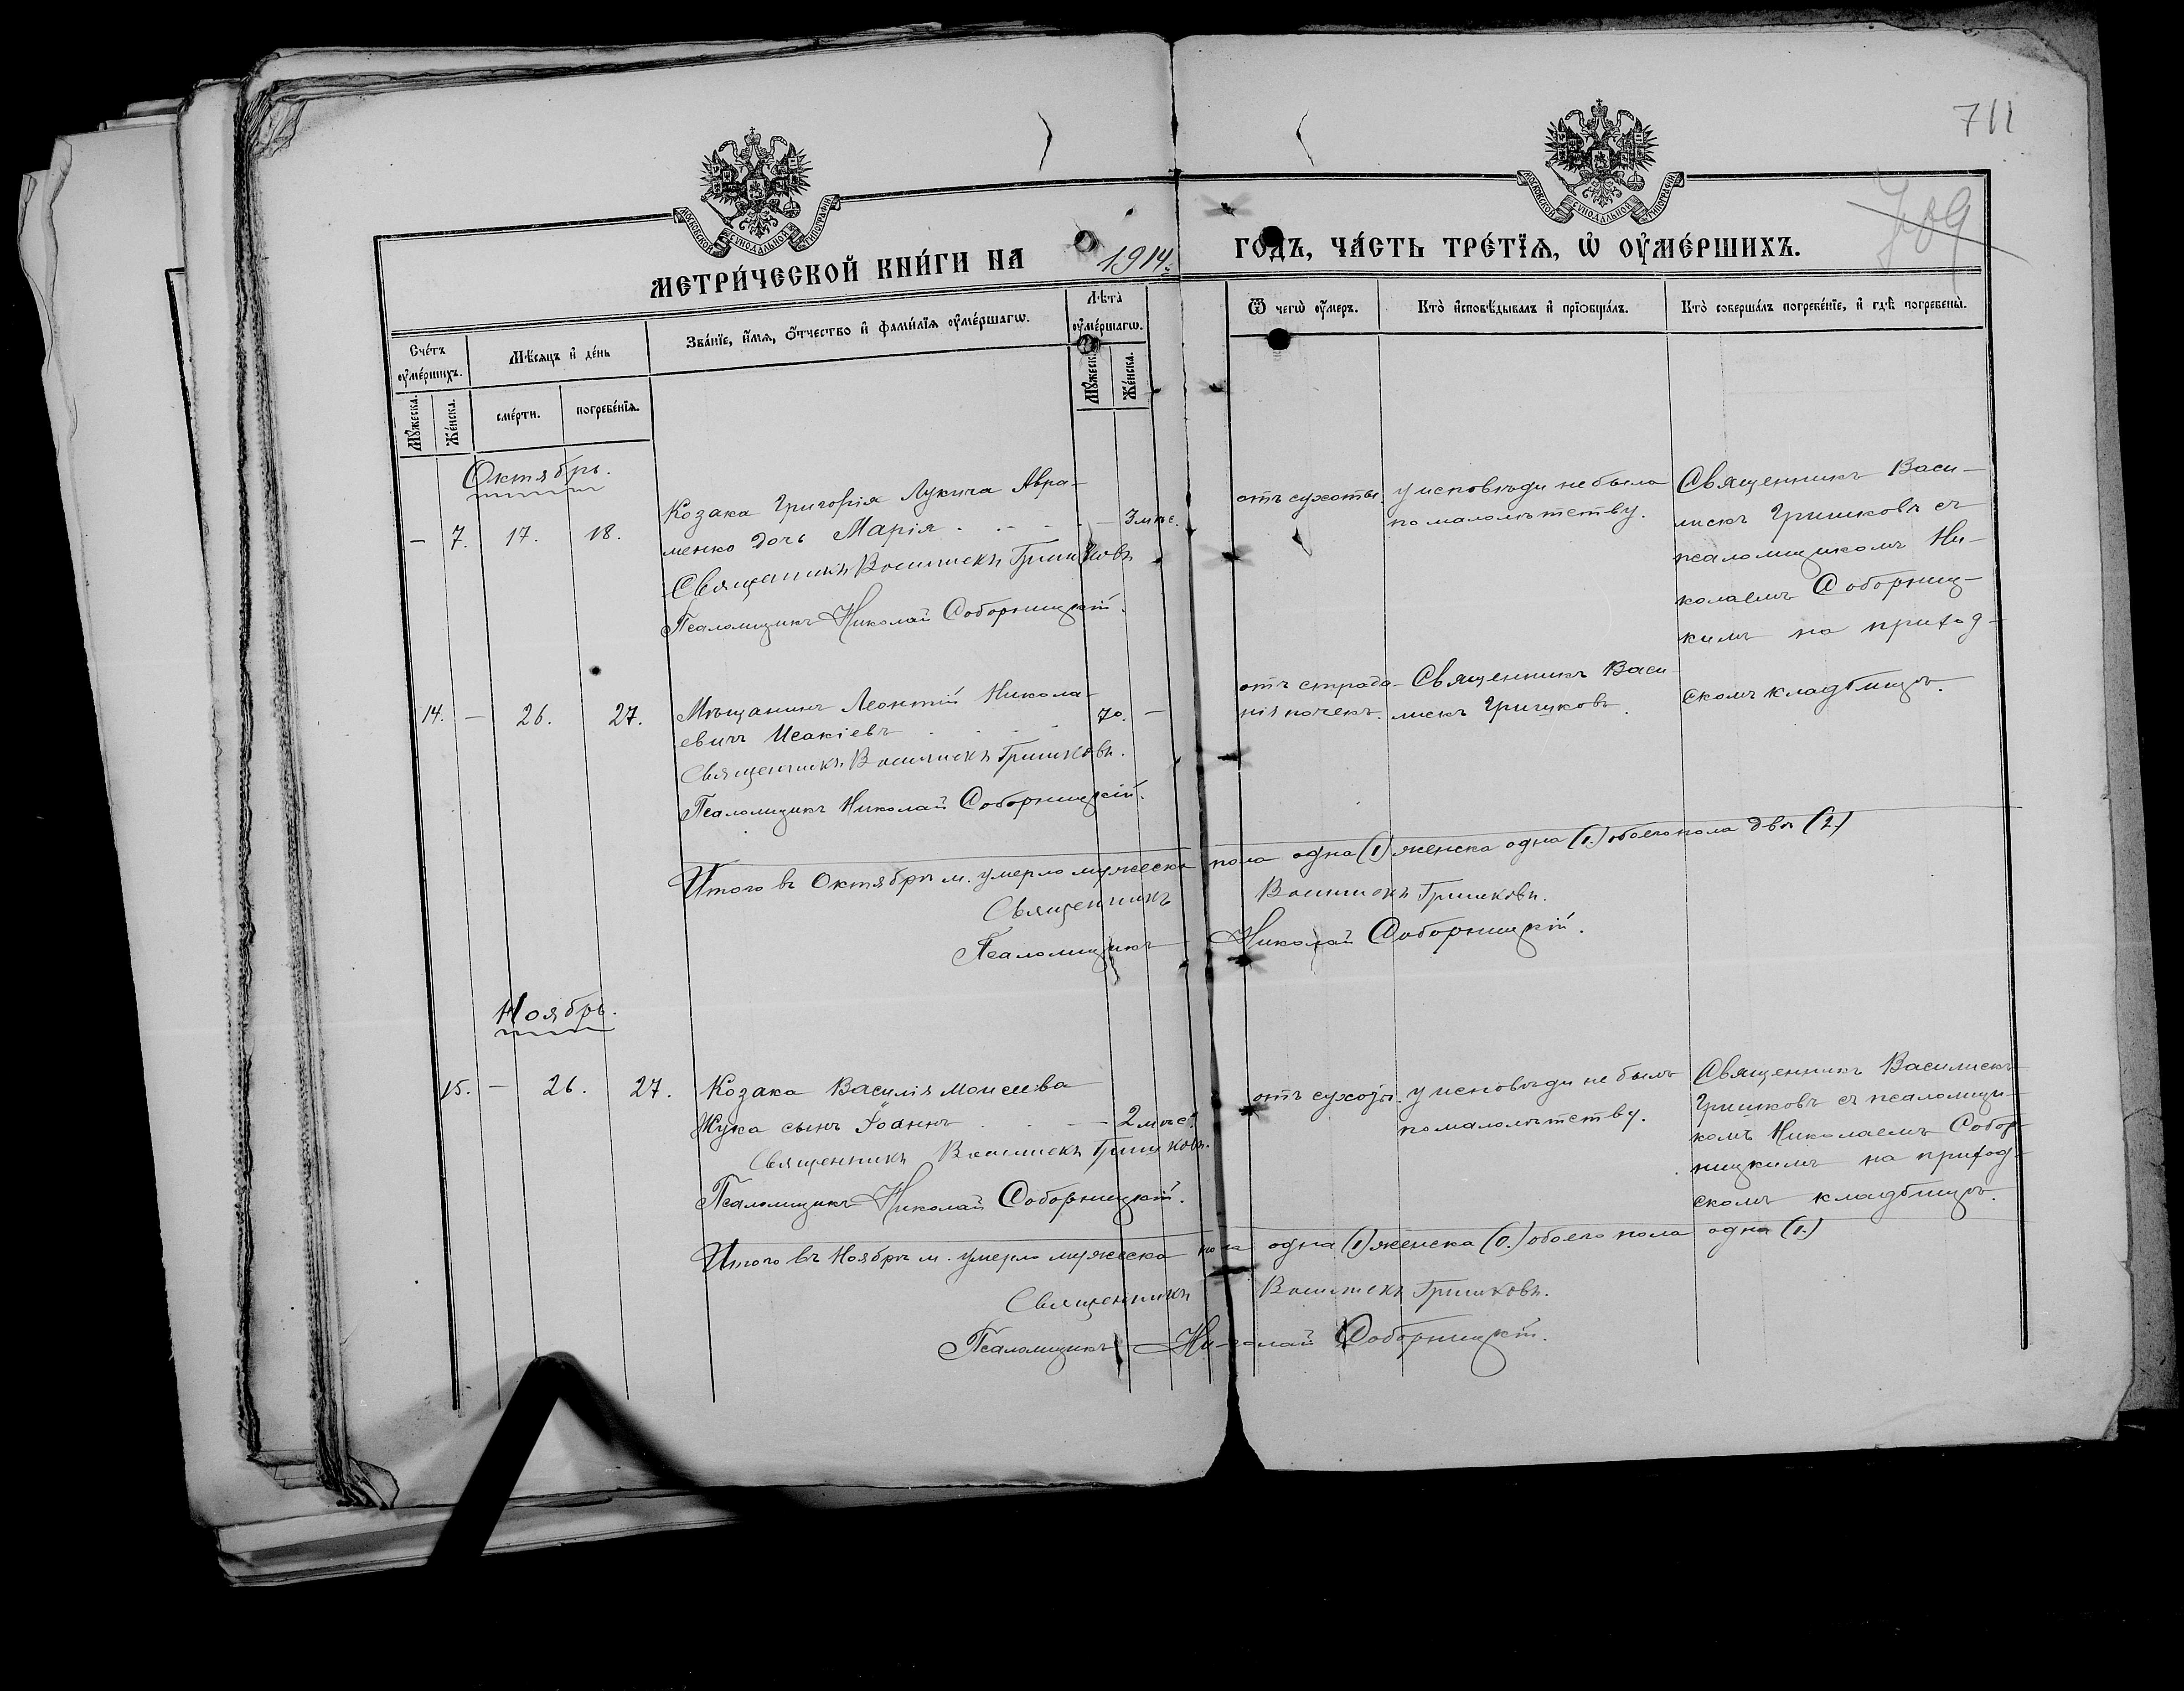 711
709
МОСКОВСКОЙ СУНОДАЛЬНОЙ ТИПОГРАФІИ
МОСКОВСКОЙ СУНОДАЛЬНОЙ ТИПОГРАФІИ
МЕТРИ́ЧЕСКОЙ КНИ́ГИ НА 1914. ГОДЪ, ЧА́СТЬ ТРЕ́ТЇѦ, Ѡ҆ ОУ҆МЕ́РШИХЪ.
Сче́тъ оу҆ме́ршихъ.
Мѣ́сѧцъ и҆ де́нь
Зва́нїе, и҆́мѧ, ѻ҆́тчество и҆ фами́лїѧ оу҆ме́ршагѡ.
Лѣ́та оу҆ме́ршагѡ.
Ѿ чегѡ̀ оу҆́меръ.
Кто̀ и҆сповѣ́дывалъ и҆ прїѡбща́лъ.
Кто̀ соверша́лъ погребе́нїе, и҆ гдѣ̀ погребены̀.
Мꙋ́жеска.
Же́нска.
сме́рти.
погребе́нїѧ.
Мꙋ́жеска.
Же́нска.
Октябрь.
— 7. 17. 18.
Козака Григорія Лукича Авра-
менко дочь Марія — 3 мѣс.
Священникъ Василискъ Гришковъ
Псаломщикъ Николай Соборницкій.
отъ сухоты.
у исповѣди не была
по малолѣтству.
Священникъ Васи-
лискъ Гришковъ съ
псаломщикомъ Ни-
колаемъ Соборниц-
кимъ на приход-
скомъ кладбищѣ.
14. — 26. 27.
Мѣщанинъ Леонтій Никола-
евичъ Исакіевъ 70. —
Священникъ Василискъ Гришковъ.
Псаломщикъ Николай Соборницкій.
отъ страда-
нія почекъ.
Священникъ Васи-
лискъ Гришковъ.
Итого въ Октябрѣ м. умерло мужеска пола одна (1) женска одна (1.) обоего пола двѣ (2.)
Священникъ Василискъ Гришковъ.
Псаломщикъ Николай Соборницкій.
Ноябрь.
15. — 26. 27.
Козака Василія Моисеева
Жука сынъ Іоаннъ — 2 мѣс.
Священникъ Василискъ Гришковъ.
Псаломщикъ Николай Соборницкій.
отъ сухоты.
у исповѣди не былъ
по малолѣтству.
Священникъ Василискъ
Гришковъ съ псаломщи-
комъ Николаемъ Собор-
ницкимъ на приход-
скомъ кладбищѣ.
Итого въ Ноябрѣ м. умерло мужеска пола одна (1) женска (0.) обоего пола одна (1.)
Священникъ Василискъ Гришковъ.
Псаломщикъ Николай Соборницкій.